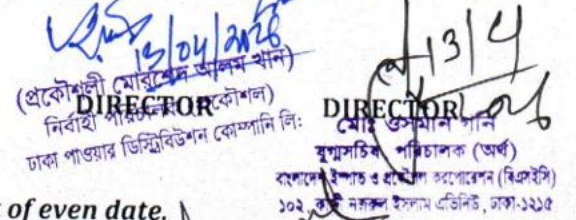 13/04/2026
(প্রকৌশলী মোরশেদ আলম খান)
DIRECTOR
নির্বাহী
ঢাকা পাওয়ার ডিস্ট্রিবিউশন কোম্পানি লি:
13/4
DIRECTOR
মোঃ ওসমান গনি
যুগ্মসচিব পরিচালক (অর্থ)
বাংলাদেশ ইস্পাত ও প্রকৌশল করপোরেশন (বিএসইসি)
১০২, কাজী নজরুল ইসলাম এভিনিউ, ঢাকা-১২১৫
of even date.